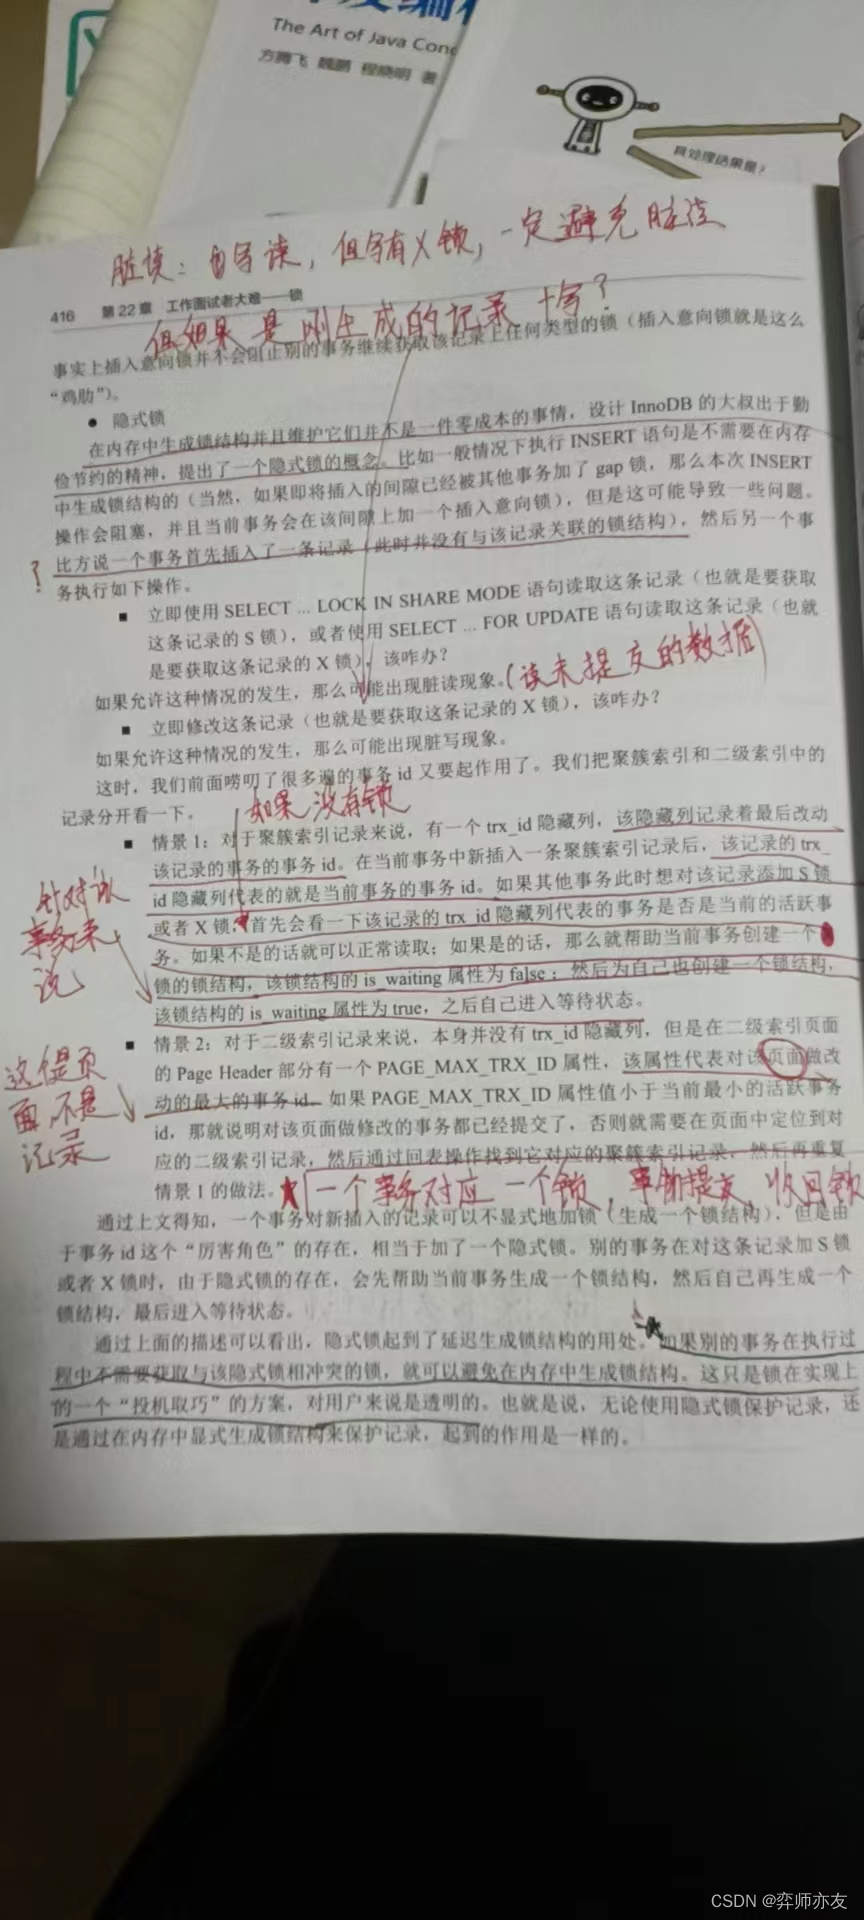 The Art of Java Conc
方腾飞 魏鹏 程晓明 著
其处理结果是?
脏读：自写读，但写有X锁，一定避免脏读
416 第 22 章 工作面试者大难——锁
但如果是刚生成的记录 十写?
事实上插入意向锁并不会阻止别的事务继续获取该记录上任何类型的锁（插入意向锁就是这么
“鸡肋”）。
● 隐式锁
在内存中生成锁结构并且维护它们并不是一件零成本的事情，设计 InnoDB 的大叔出于勤
俭节约的精神，提出了一个隐式锁的概念。比如一般情况下执行 INSERT 语句是不需要在内存
中生成锁结构的（当然，如果即将插入的间隙已经被其他事务加了 gap 锁，那么本次 INSERT
操作会阻塞，并且当前事务会在该间隙上加一个插入意向锁），但是这可能导致一些问题。
?
比方说一个事务首先插入了一条记录（此时并没有与该记录关联的锁结构），然后另一个事
务执行如下操作。
■ 立即使用 SELECT ... LOCK IN SHARE MODE 语句读取这条记录（也就是要获取
这条记录的 S 锁），或者使用 SELECT ... FOR UPDATE 语句读取这条记录（也就
是要获取这条记录的 X 锁），该咋办？
如果允许这种情况的发生，那么可能出现脏读现象。（读未提交的数据）
■ 立即修改这条记录（也就是要获取这条记录的 X 锁），该咋办？
如果允许这种情况的发生，那么可能出现脏写现象。
这时，我们前面唠叨了很多遍的事务 id 又要起作用了。我们把聚簇索引和二级索引中的
记录分开看一下。
如果没有锁
■ 情景 1：对于聚簇索引记录来说，有一个 trx_id 隐藏列，该隐藏列记录着最后改动
该记录的事务的事务 id。在当前事务中新插入一条聚簇索引记录后，该记录的 trx_
id 隐藏列代表的就是当前事务的事务 id。如果其他事务此时想对该记录添加 S 锁
或者 X 锁，首先会看一下该记录的 trx_id 隐藏列代表的事务是否是当前的活跃事
务。如果不是的话就可以正常读取；如果是的话，那么就帮助当前事务创建一个
锁的锁结构，该锁结构的 is_waiting 属性为 false；然后为自己也创建一个锁结构，
该锁结构的 is_waiting 属性为 true，之后自己进入等待状态。
针对该
事务来
说
■ 情景 2：对于二级索引记录来说，本身并没有 trx_id 隐藏列，但是在二级索引页面
的 Page Header 部分有一个 PAGE_MAX_TRX_ID 属性，该属性代表对该页面做改
动的最大的事务 id。如果 PAGE_MAX_TRX_ID 属性值小于当前最小的活跃事务
id，那就说明对该页面做修改的事务都已经提交了，否则就需要在页面中定位到对
应的二级索引记录，然后通过回表操作找到它对应的聚簇索引记录，然后再重复
情景 1 的做法。
这是页
面,不是
记录
一个事务对应一个锁，事物提交，收回锁
通过上文得知，一个事务对新插入的记录可以不显式地加锁（生成一个锁结构），但是由
于事务 id 这个“厉害角色”的存在，相当于加了一个隐式锁。别的事务在对这条记录加 S 锁
或者 X 锁时，由于隐式锁的存在，会先帮助当前事务生成一个锁结构，然后自己再生成一个
锁结构，最后进入等待状态。
通过上面的描述可以看出，隐式锁起到了延迟生成锁结构的用处。如果别的事务在执行过
程中不需要获取与该隐式锁相冲突的锁，就可以避免在内存中生成锁结构。这只是锁在实现上
的一个“投机取巧”的方案，对用户来说是透明的。也就是说，无论使用隐式锁保护记录，还
是通过在内存中显式生成锁结构来保护记录，起到的作用是一样的。
CSDN @弈师亦友